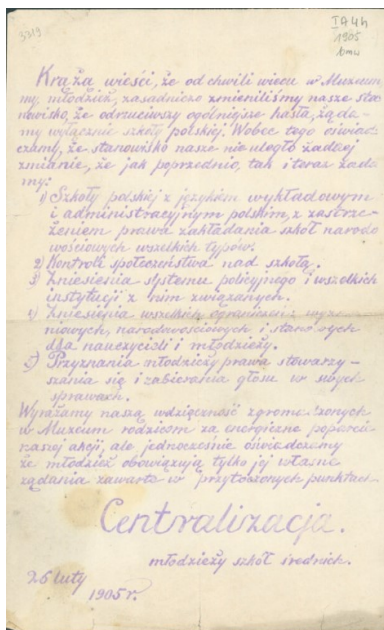 3319
IA4h
1905
Krążą wieści, że od chwili wiecu w Muzeum
my, młodzież, zasadniczo zmieniliśmy nasze sta-
nowisko, że odrzuciwszy ogólniejsze hasła, żąda-
my wyłącznie szkoły polskiej. Wobec tego oświad-
czamy, że stanowisko nasze nie uległo żadnej
zmianie, że jak poprzednio, tak i teraz żąda-
my:
1) Szkoły polskiej z językiem wykładowym
i administracyjnym polskim, z zastrze-
żeniem prawa zakładania szkół narodo-
wościowych wszelkich typów.
2) Kontroli społeczeństwa nad szkołą.
3) Zniesienia systemu policyjnego i wszelkich
instytucji z nim związanych.
4) Zniesienia wszelkich ograniczeń wyzna-
niowych, narodowościowych i stanowych
dla nauczycieli i młodzieży.
5) Przyznania młodzieży prawa stowarzy-
szania się i zabierania głosu w swych
sprawach.
Wyrażamy naszą wdzięczność zgromadzonych
w Muzeum rodzicom za energiczne poparcie
naszej akcji, ale jednocześnie oświadczamy
że młodzież obowiązują tylko jej własne
żądania zawarte w przytoczonych punktach.
Centralizacja.
młodzieży szkół średnich.
25 luty
1905 r.